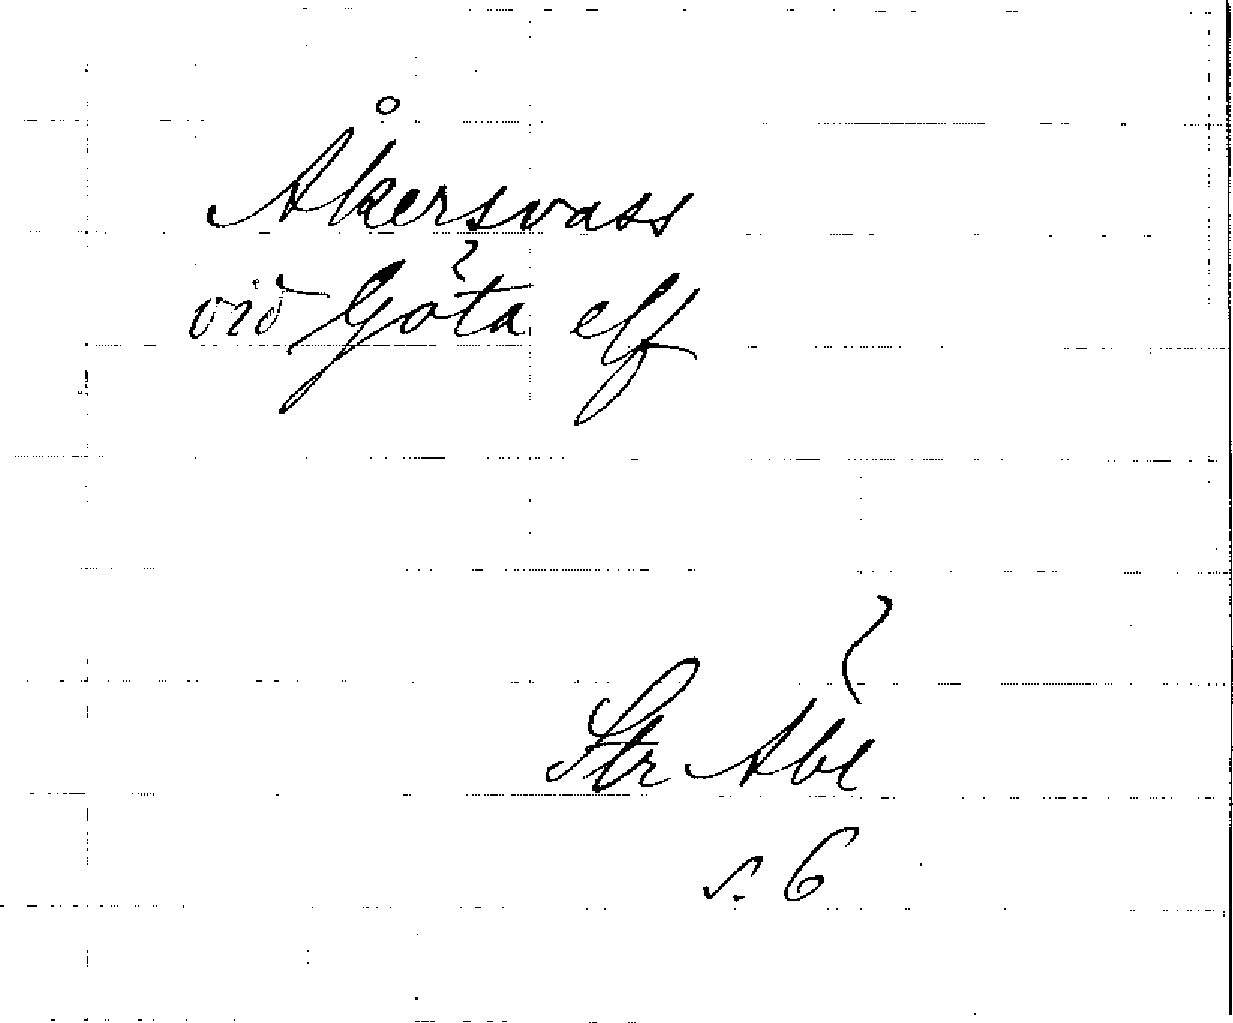 Åkersvass
vid Göta elf
Str Åbl
s. 6